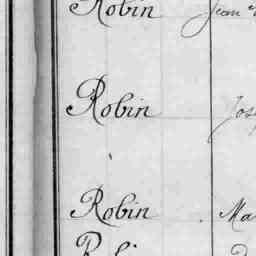 Robin Jean
Robin Jos
Robin Ma
Robin